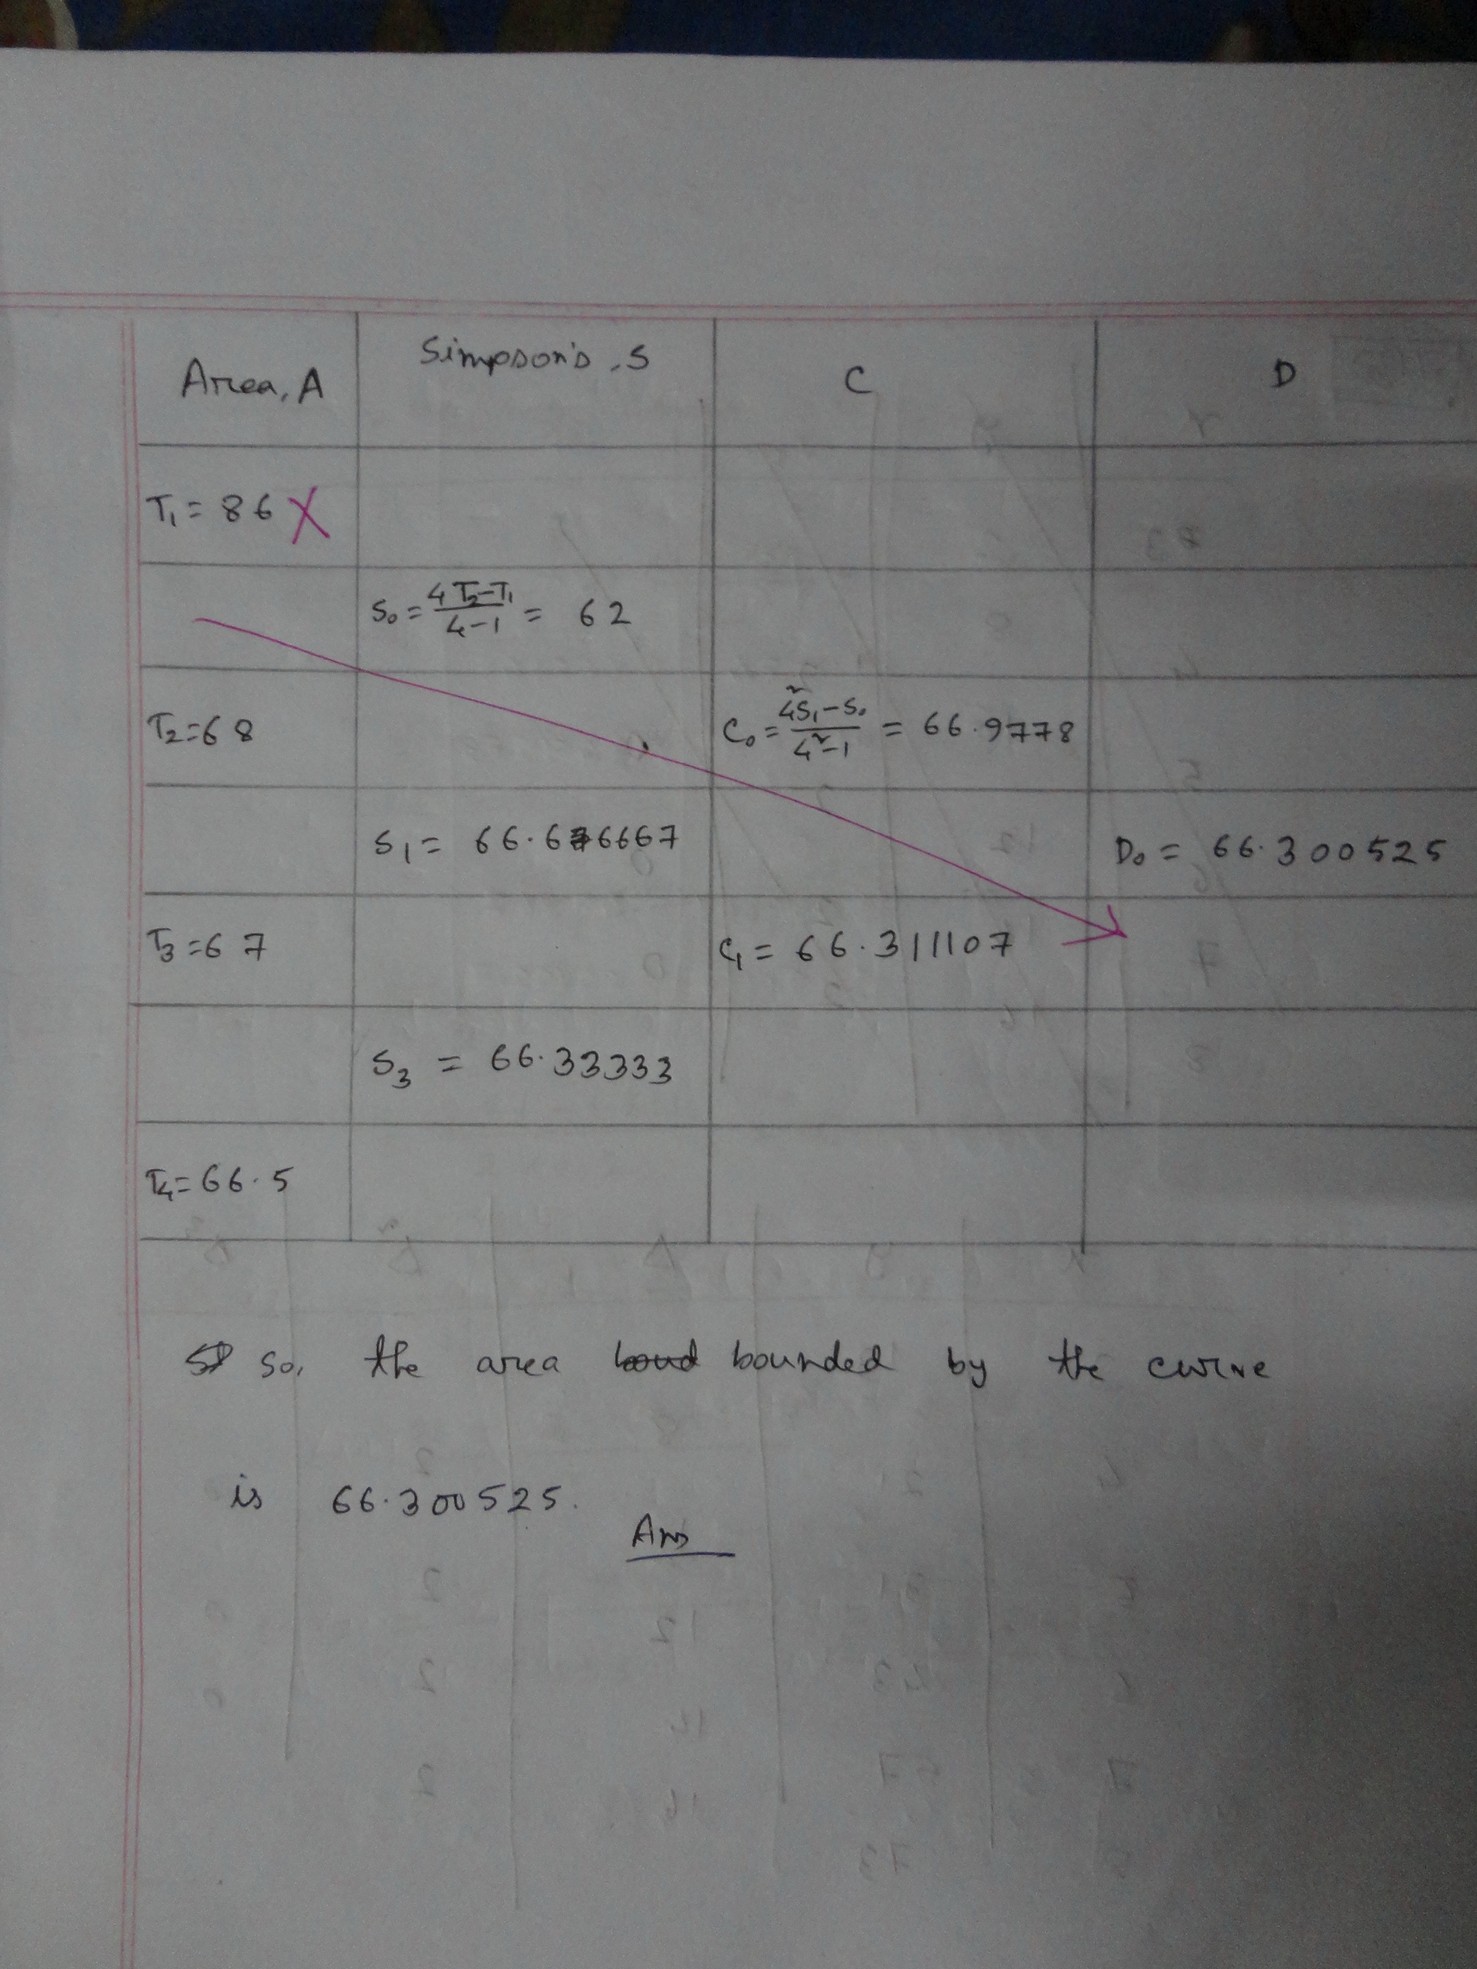 Area, A Simpson's, S C D
T₁ = 86
S₀ = (4T₂-T₁)/(4-1) = 62
T₂=68 C₀ = (4²S₁-S₀)/(4²-1) = 66.9778
S₁ = 66.666667 D₀ = 66.300525
T₃=67 C₁ = 66.311107
S₃ = 66.33333
T₄=66.5
So, the area bounded by the curve
is 66.300525.
Ans